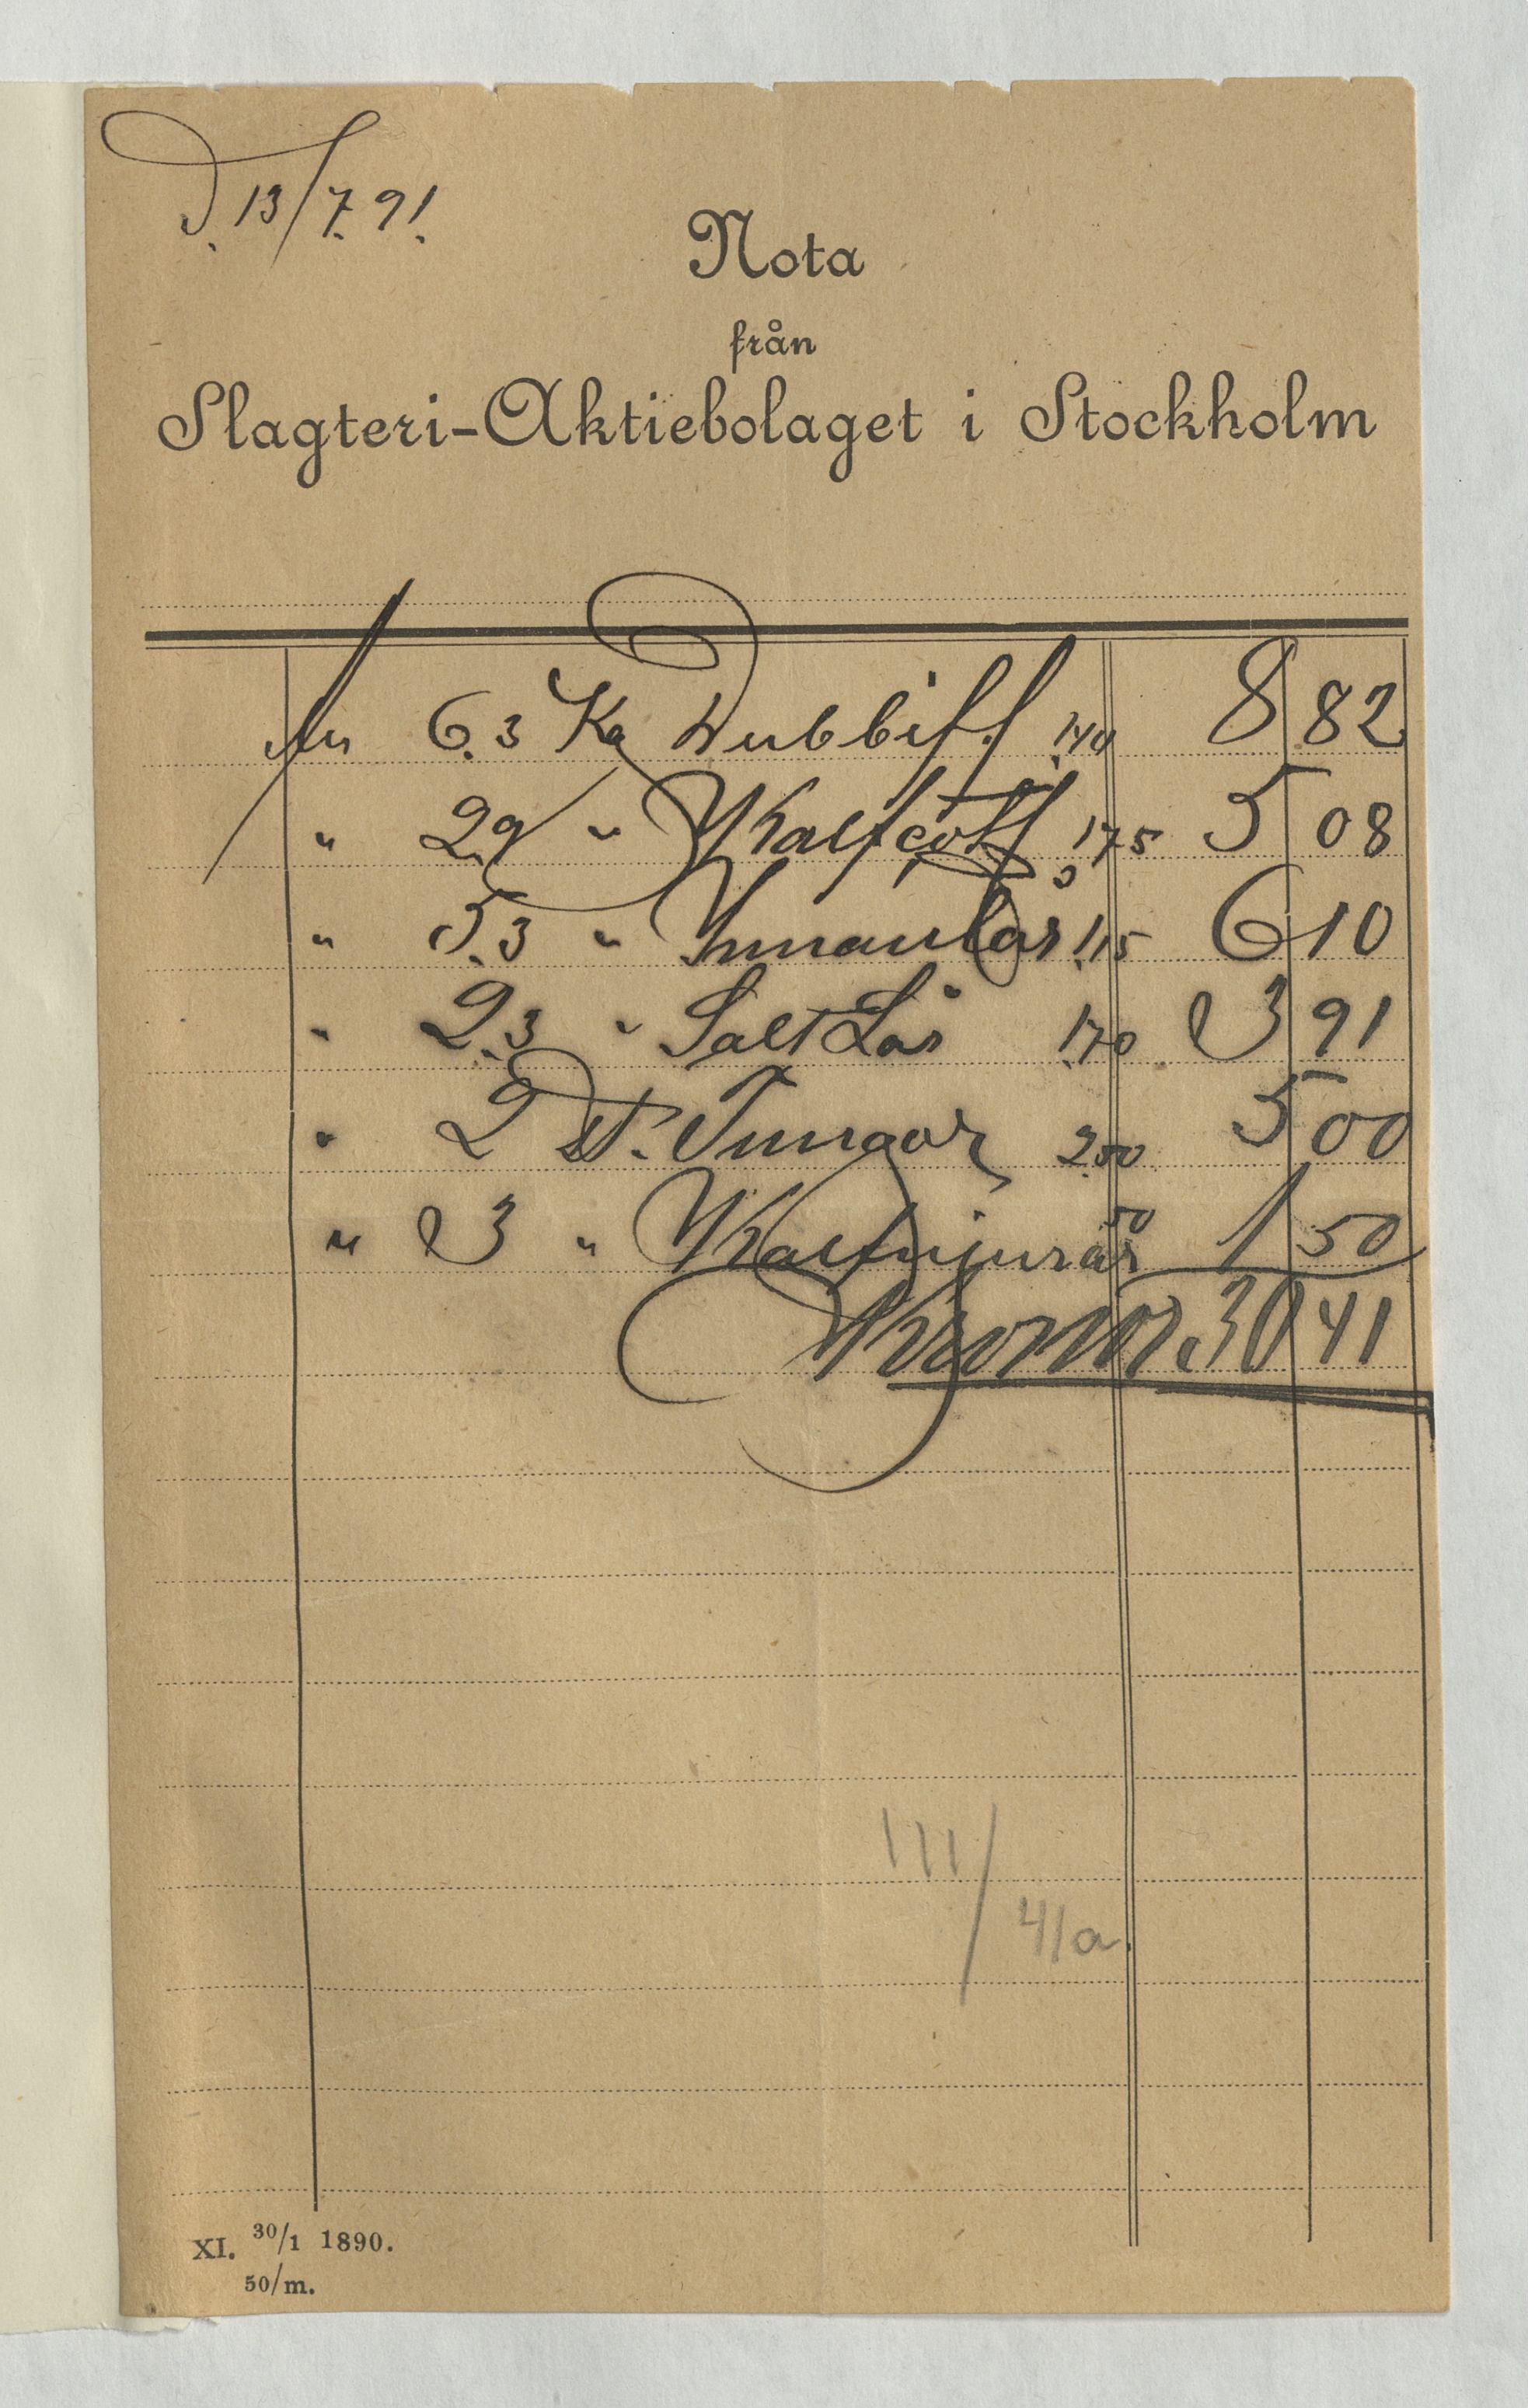 D. 13/7. 91.
Nota
från
Slagteri-Aktiebolaget i Stockholm
An 6.3 Kg Dubbiff. 1.40 8 82
" 2.9 " Kalfcotl 1.75 5 08
" 5.3 " Innanlår 1.15 6 10
" 2.3 " Salt Lår 1.70 3 91
" 2 St. Tungor 2.50 5 00
" 3 " Kalfnjurar 50 1 50
Kronor. 30 41
III/41a.
XI. 30/1 1890.
50/m.